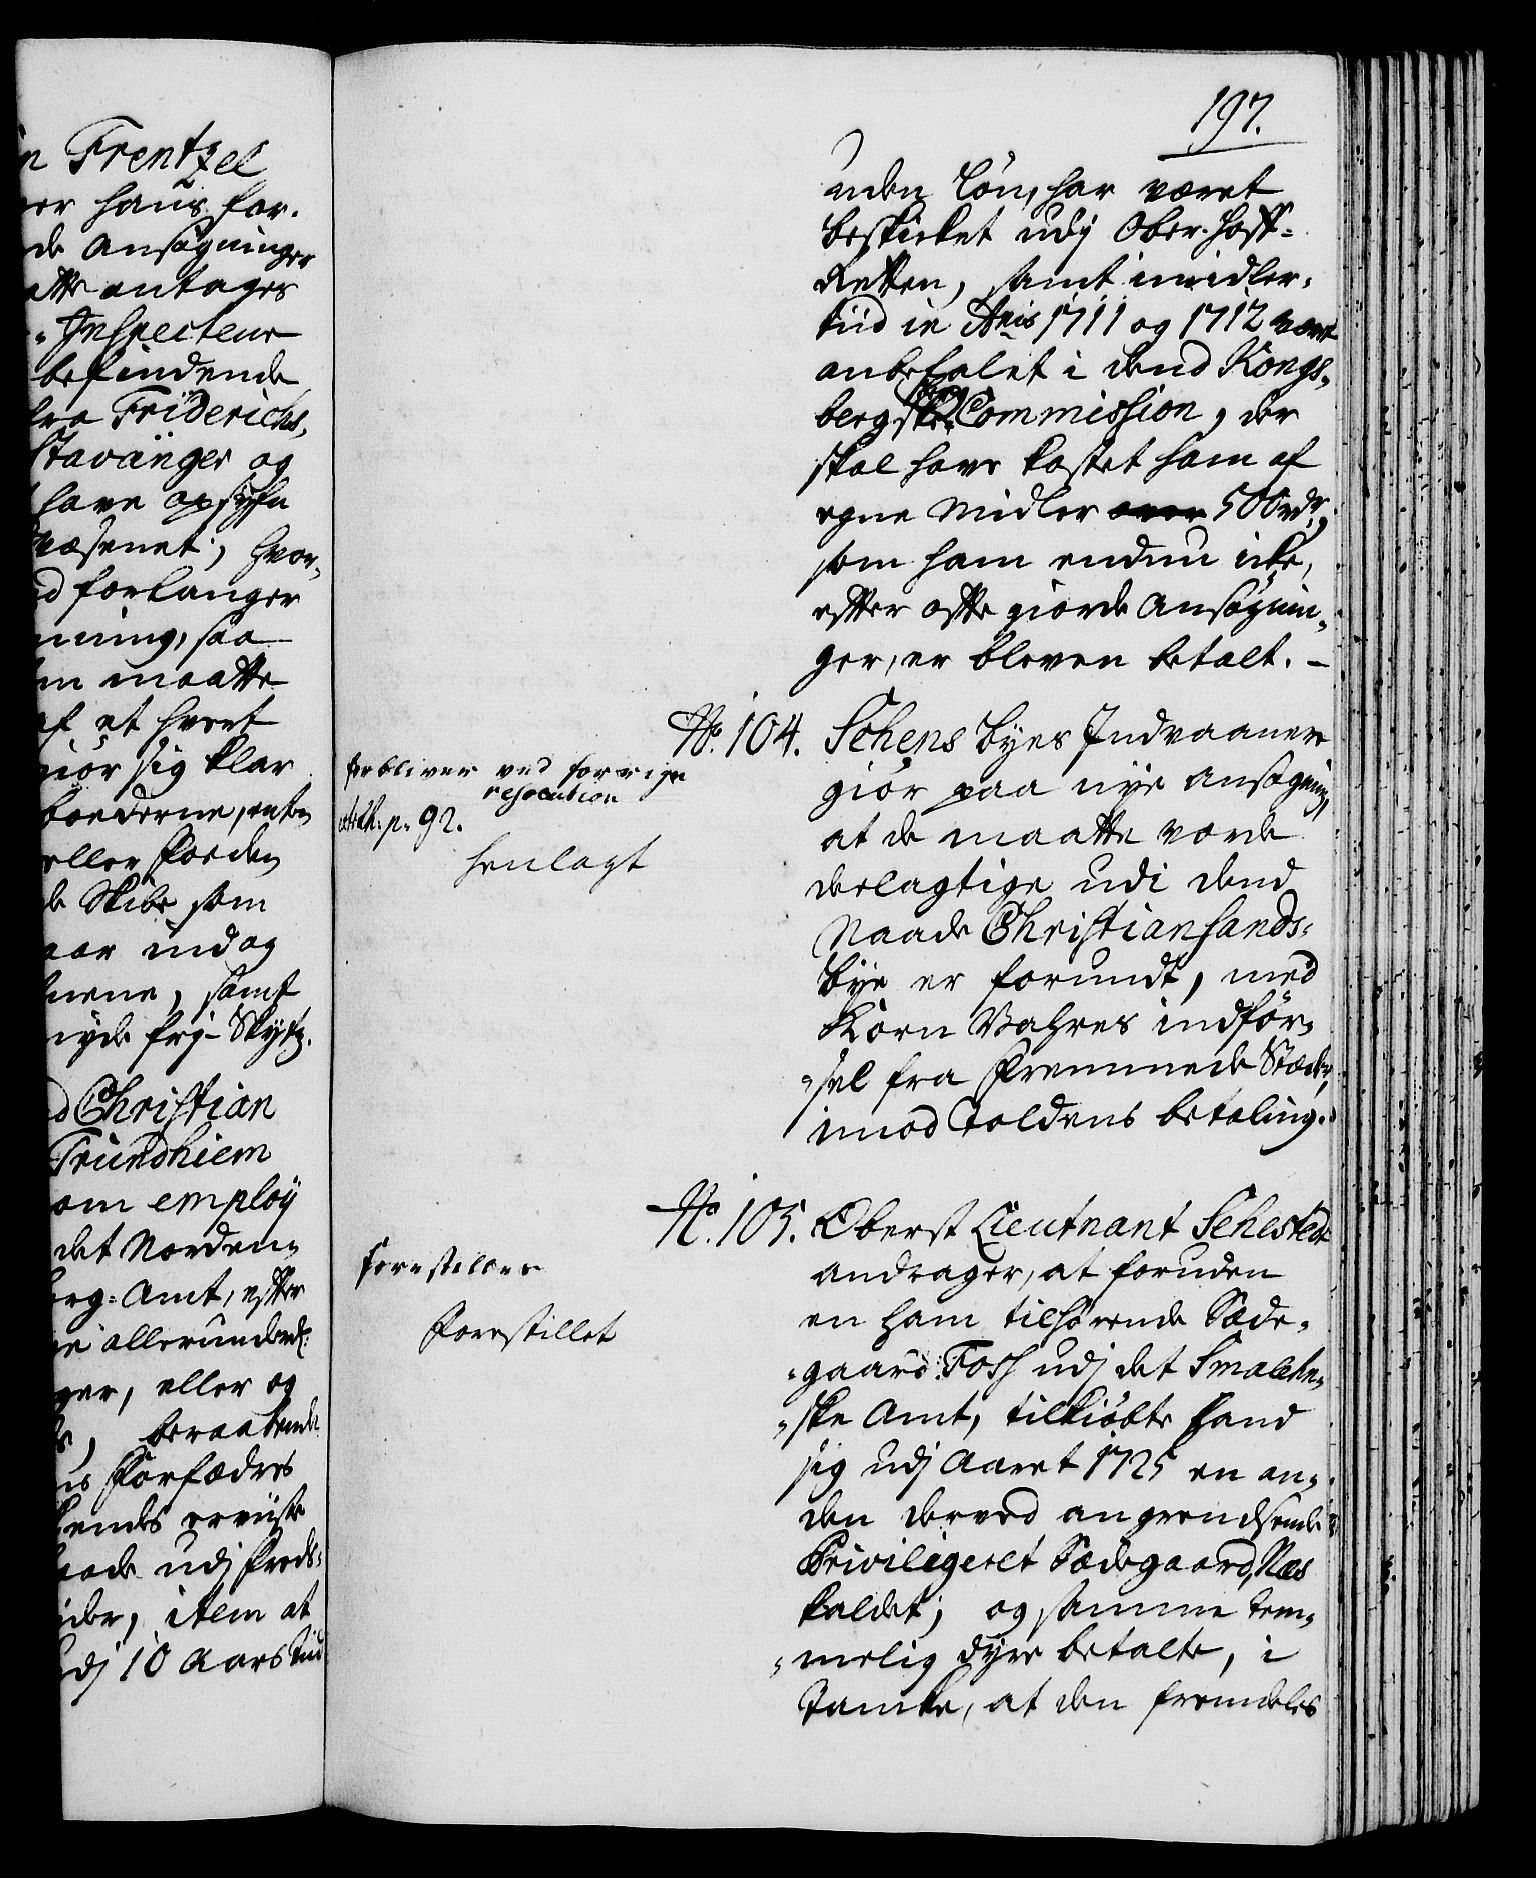 n Frentzel
er hans for.
de Ansøgninger
atte antages
Inspecteur
befindende
fra Friderichs,
Stavanger og
have opsyn
væsenet, hvor,
d forlanger
nning, saa
m maatte
af et hvert
giør sig klar
boederne, enten
eller Borden
de Skibe som
aar ind og
nene, samt
nyde frj Skyds.
d Christian
Trundhiem
om employ
det Norden,
erg: Amt, efter
e allerunderd:
ger, eller og
beraabende
s Forfædres
hendes erviiste
ade udj freds,
ider, item at
udj 10 Aars Tiid
197.
uden Løn, har været
beskicket udj Ober-Hoff-
Retten, samt imidler,
tiid in Anis 1711 og 1712 været
anbefalet i dend Kongs,
bergske Commission, der
skal have kostet ham af
egne Midler over 500 rdr,
som ham endnu icke,
efter ofte giorde Ansøgnin,
ger, er bleven betalt. –
No. 104. Schens byes Indvaanere
giør paa nye ansøgning,
at de maatte vorde
deelagtige udi dend
Naade Christiansands-
bye er forundt, med
Korn Vahres indfør,
sel fra Fremmede Stæder,
imod Toldens betaling.
forbliver ved forrige
resolution
extrah. p. 92.
henlagt
No. 105. Oberst Lieutnant Sehested
andrager, at foruden
en ham tilhørende Sæde,
gaard Foss udj det Smaalehn,
ske Amt, tilkiøbte Hand
sig udj Aaret 1725 en an,
den derved angrendsende
Privilegeret Sædegaard, Næs
kaldet; og samme tem,
melig dyre betalte, i
Tancke, at den fremdeles
forestilles
Forestillet